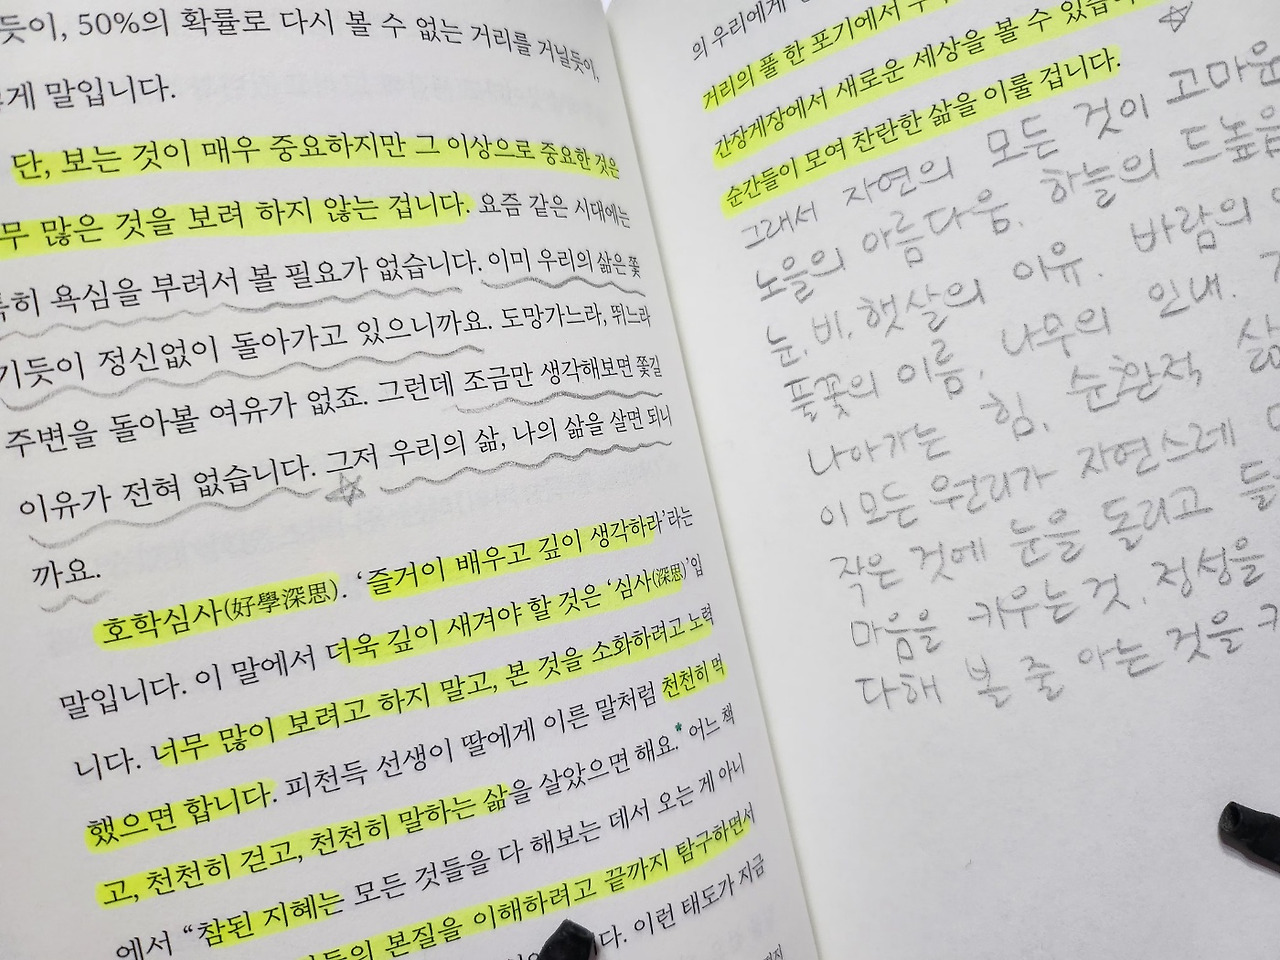 듯이, 50%의 확률로 다시 볼 수 없는 거리를 거닐듯이,
게 말입니다.
단, 보는 것이 매우 중요하지만 그 이상으로 중요한 것은
무 많은 것을 보려 하지 않는 겁니다. 요즘 같은 시대에는
특히 욕심을 부려서 볼 필요가 없습니다. 이미 우리의 삶은 쫓
기듯이 정신없이 돌아가고 있으니까요. 도망가느라, 뛰느라
주변을 돌아볼 여유가 없죠. 그런데 조금만 생각해보면 쫓길
이유가 전혀 없습니다. 그저 우리의 삶, 나의 삶을 살면 되니
까요.
호학심사(好學深思). ‘즐거이 배우고 깊이 생각하라’라는
말입니다. 이 말에서 더욱 깊이 새겨야 할 것은 ‘심사(深思)’입
니다. 너무 많이 보려고 하지 말고, 본 것을 소화하려고 노력
했으면 합니다. 피천득 선생이 딸에게 이른 말처럼 천천히 먹
고, 천천히 걷고, 천천히 말하는 삶을 살았으면 해요.* 어느 책
에서 “참된 지혜는 모든 것들을 다 해보는 데서 오는 게 아니
들의 본질을 이해하려고 끝까지 탐구하면서
다. 이런 태도가 지금
의 우리에게
거리의 풀 한 포기에서
간장게장에서 새로운 세상을 볼 수 있습
순간들이 모여 찬란한 삶을 이룰 겁니다.
그래서 자연의 모든 것이 고마운
노을의 아름다움, 하늘의 드높음
눈, 비, 햇살의 이유. 바람의
풀꽃의 이름, 나무의 인내.
나아가는 힘, 순환적 삶
이 모든 원리가 자연스레
작은 것에 눈을 돌리고
마음을 키우는 것, 정성을
다해 볼 줄 아는 것을